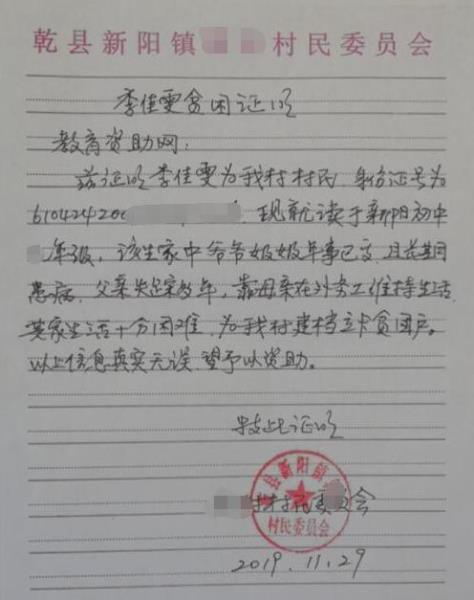 乾县新阳镇 村民委员会
李佳雯贫困证明
教育资助网:
兹证明李佳雯为我村村民,身份证号为
610424200 .现就读于新阳初中
年级,该生家中爷爷奶奶年事已高,且长期
患病,父亲失踪多年,靠母亲在外务工维持生活
其家生活十分困难,为我村建档立卡贫困户。
以上信息真实无误,望予以资助。
特此证明
村民委员会
县新阳镇
村民委员会
2019.11.29